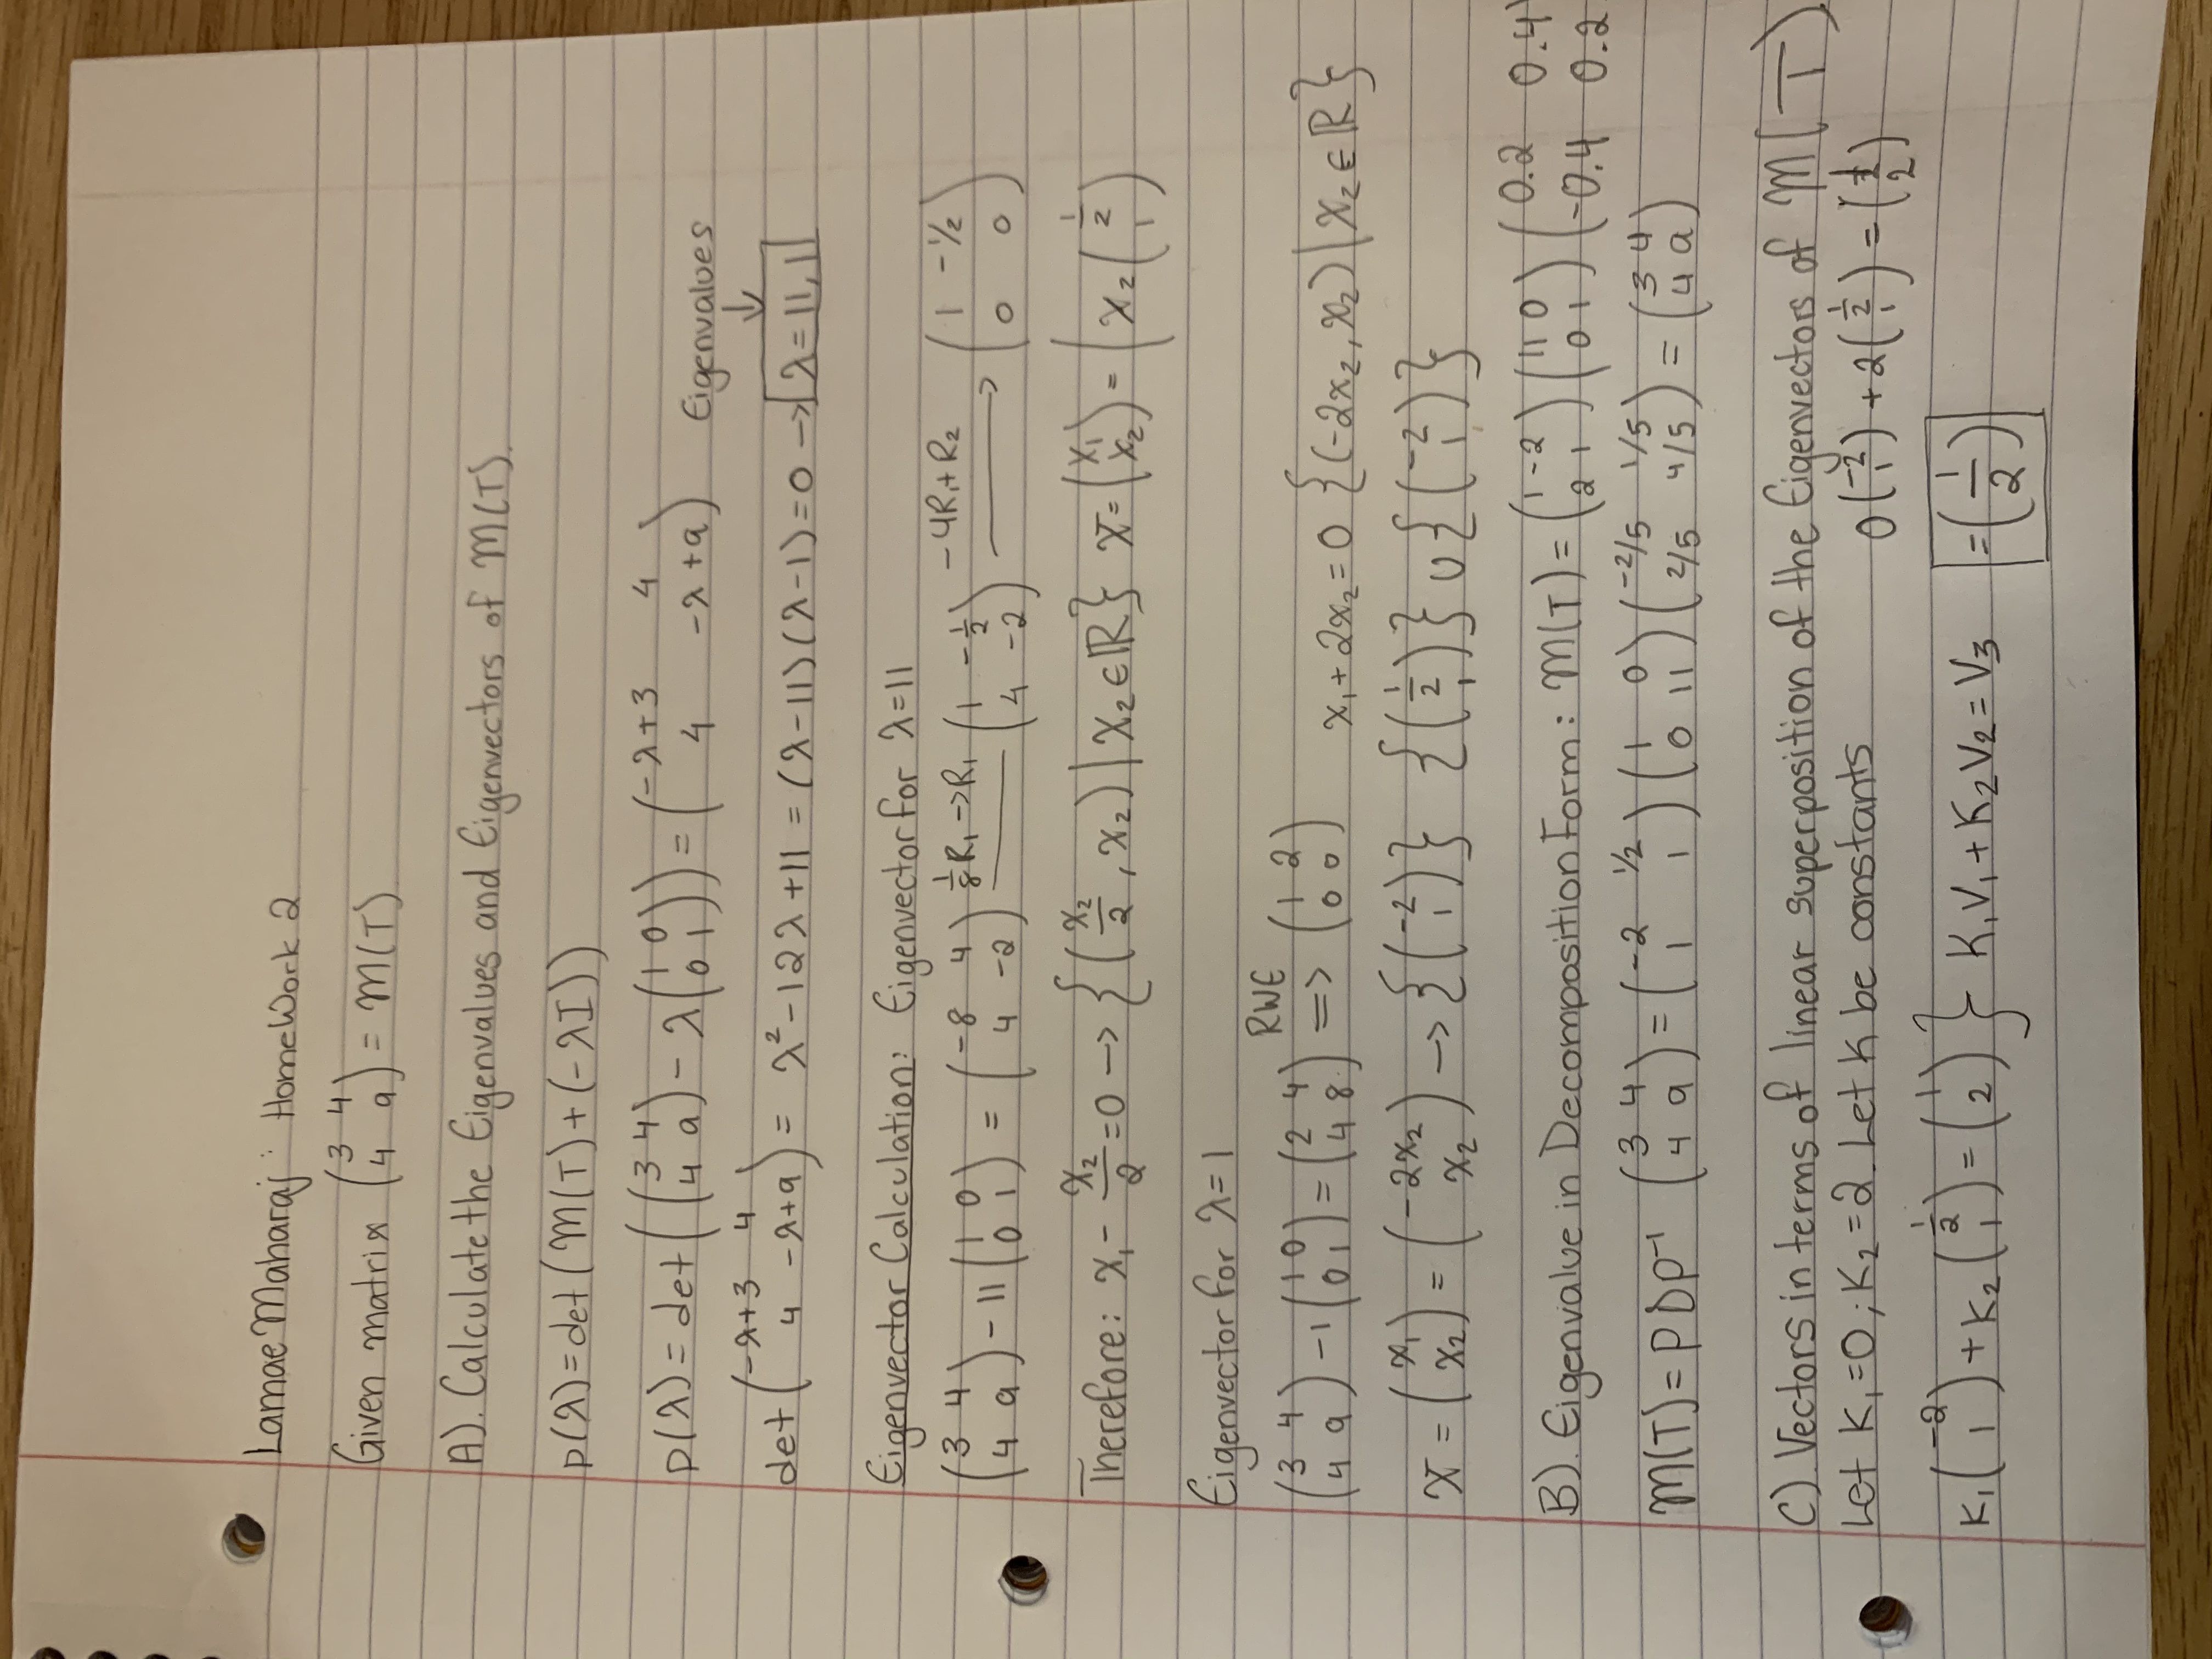 Lamae Maharaj: HomeWork 2
Given matrix (3 4; 4 9) = M(T)
A). Calculate the Eigenvalues and Eigenvectors of M(T).
p(λ)=det(M(T)+(-λI))
p(λ)=det((3 4; 4 9)-λ(1 0; 0 1))=(-λ+3 4; 4 -λ+9) Eigenvalues ↓
det(-λ+3 4; 4 -λ+9)= λ²-12λ+11=(λ-11)(λ-1)=0 → λ=11,1
Eigenvector Calculation: Eigenvector for λ=11
(3 4; 4 9)-11(1 0; 0 1)=(-8 4; 4 -2) 1/8R₁→R₁ (1 -1/2; 4 -2) -4R₁+R₂ → (1 -1/2; 0 0)
Therefore: x₁- x₂/2=0 → {(x₂/2, x₂)|x₂∈ℝ} x=(x₁; x₂)=(x₂(1/2; 1)
Eigenvector for λ=1
(3 4; 4 9)-1(1 0; 0 1)=(2 4; 4 8) RWE => (1 2; 0 0) x₁+2x₂=0 {(-2x₂, x₂)|x₂∈ℝ}
x=(x₁; x₂)=(-2x₂; x₂)→{(-2; 1)} {(1/2; 1)}∪{(-2; 1)}
B). Eigenvalue in Decomposition Form: M(T)=(1 -2; 2 1)(11 0; 0 1)(0.2 0.4; -0.4 0.2
M(T)=PDP⁻¹ (3 4; 4 9)=(-2 1/2; 1 1)(1 0; 0 11)(-2/5 1/5; 2/5 4/5)=(3 4; 4 9)
C) Vectors in terms of linear superposition of the Eigenvectors of M(T)
Let K₁=0; K₂=2. Let K be constants 0(-2; 1)+2(1/2; 1)=(1; 2)
K₁(-2; 1)+K₂(1/2; 1)=(1; 2)} K₁V₁+K₂V₂=V₃ =(1; 2)